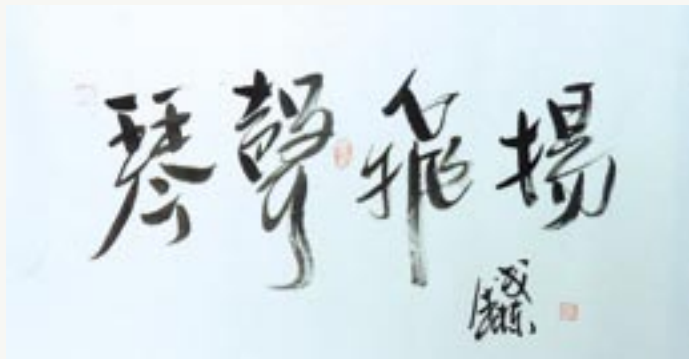 琴聲飛揚